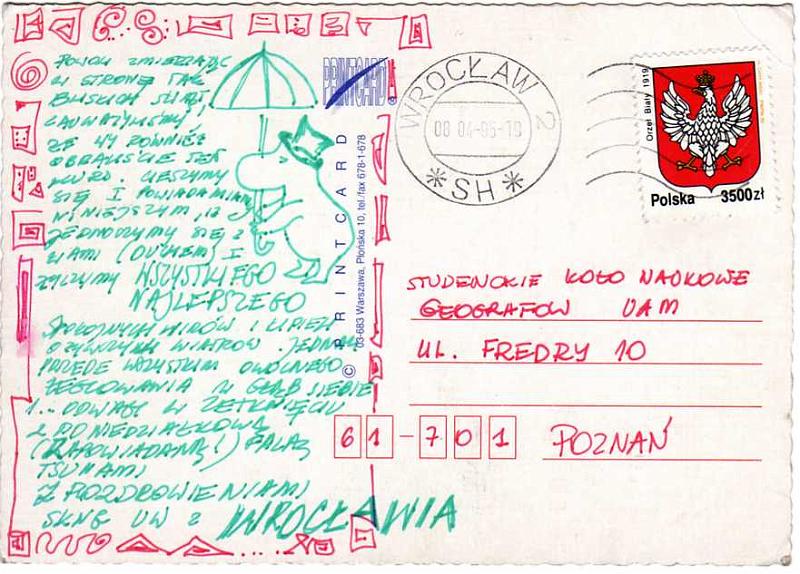 POWOLI ZMIERZAJĄC
W STRONĘ TAK
BLISKICH ŚWIĄT
ZAUWAŻYLIŚMY
ŻE WY RÓWNIEŻ
OBRALIŚCIE TEN
KURS. CIESZYMY
SIĘ I POWIADAMIAMY
NINIEJSZYM, IŻ
JEDNOCZYMY SIĘ Z
WAMI (DUCHEM) I
ŻYCZYMY WSZYSTKIEGO
NAJLEPSZEGO
SPOKOJNYCH I
WIATRÓW
PRZEDE WSZYSTKIM OWOCNEGO
ŻEGLOWANIA W GŁĄB SIEBIE
I... ODWAGI W ZETKNIĘCIU
Z PONIEDZIAŁKOWĄ
(ZAPOWIADANĄ!) FALĄ
TSUNAMI
Z POZDROWIENIAMI
SKNG UW z WROCŁAWIA
PRINTCARD
© PRINTCARD
03-683 Warszawa, Płońska 10, tel./fax 678-1-678
WROCŁAW 2
08 04-95-19
* SH *
Orzeł Biały 1919
Polska 3500zł
STUDENCKIE KOŁO NAUKOWE
GEOGRAFÓW UAM
UL. FREDRY 10
61-701 POZNAŃ